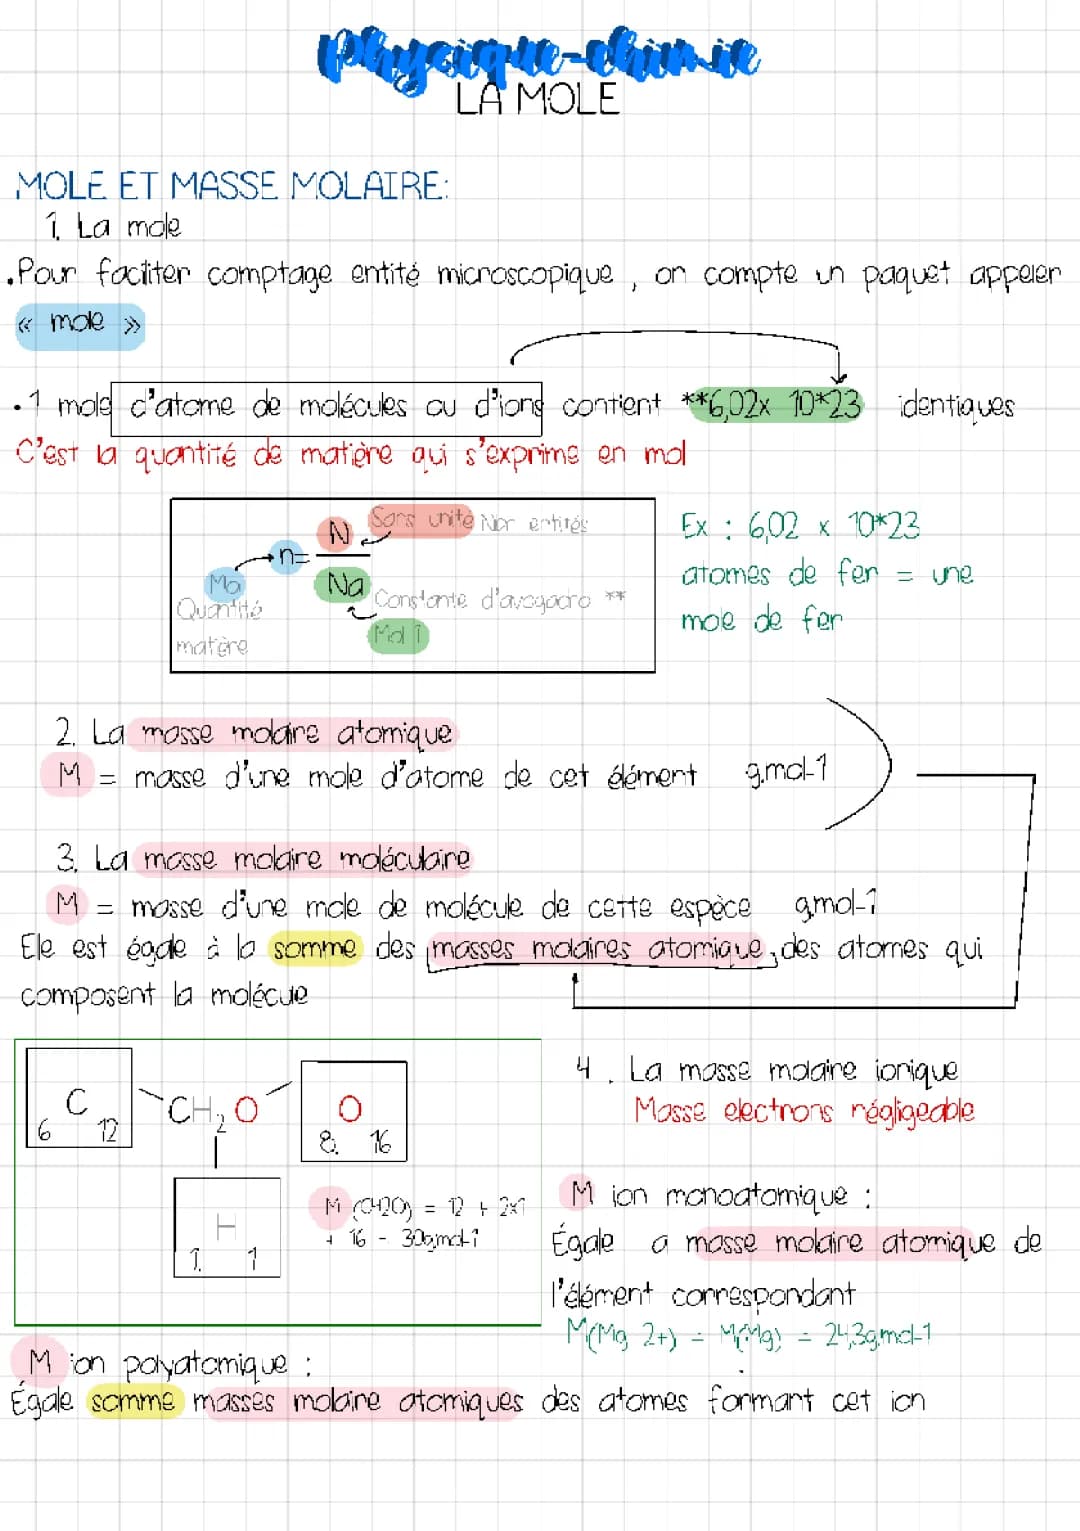 Physique-chimie
LA MOLE
MOLE ET MASSE MOLAIRE:
1. La mole
.Pour faciliter comptage entité microscopique , on compte un paquet appeler
« mole »
.1 mole d'atome de molécules ou d'ions contient **6,02x 10*23 identiques
C'est la quantité de matière qui s'exprime en mol
N Sans unité Nbr entités
n=
Na Constante d'avogadro **
Quantité
matère
Mol 1
Ex : 6,02 x 10*23
atomes de fer = une
mole de fer
2. La masse molaire atomique
M = masse d'une mole d'atome de cet élément g.mol-1
3. La masse molaire moléculaire
M = masse d'une mole de molécule de cette espèce g.mol-1
Elle est égale à la somme des masses molaires atomique des atomes qui
composent la molécule
C
6 12
CH2O
O
8. 16
H
1. 1
M (CH2O) = 12 + 2x1
+ 16 = 30g.mol-1
4 . La masse molaire ionique
Masse electrons négligeable
M ion monoatomique :
Égale a masse molaire atomique de
l'élément correspondant
M(Mg 2+) = M(Mg) = 24,3g.mol-1
M ion polyatomique :
Égale somme masses molaire atomiques des atomes formant cet ion